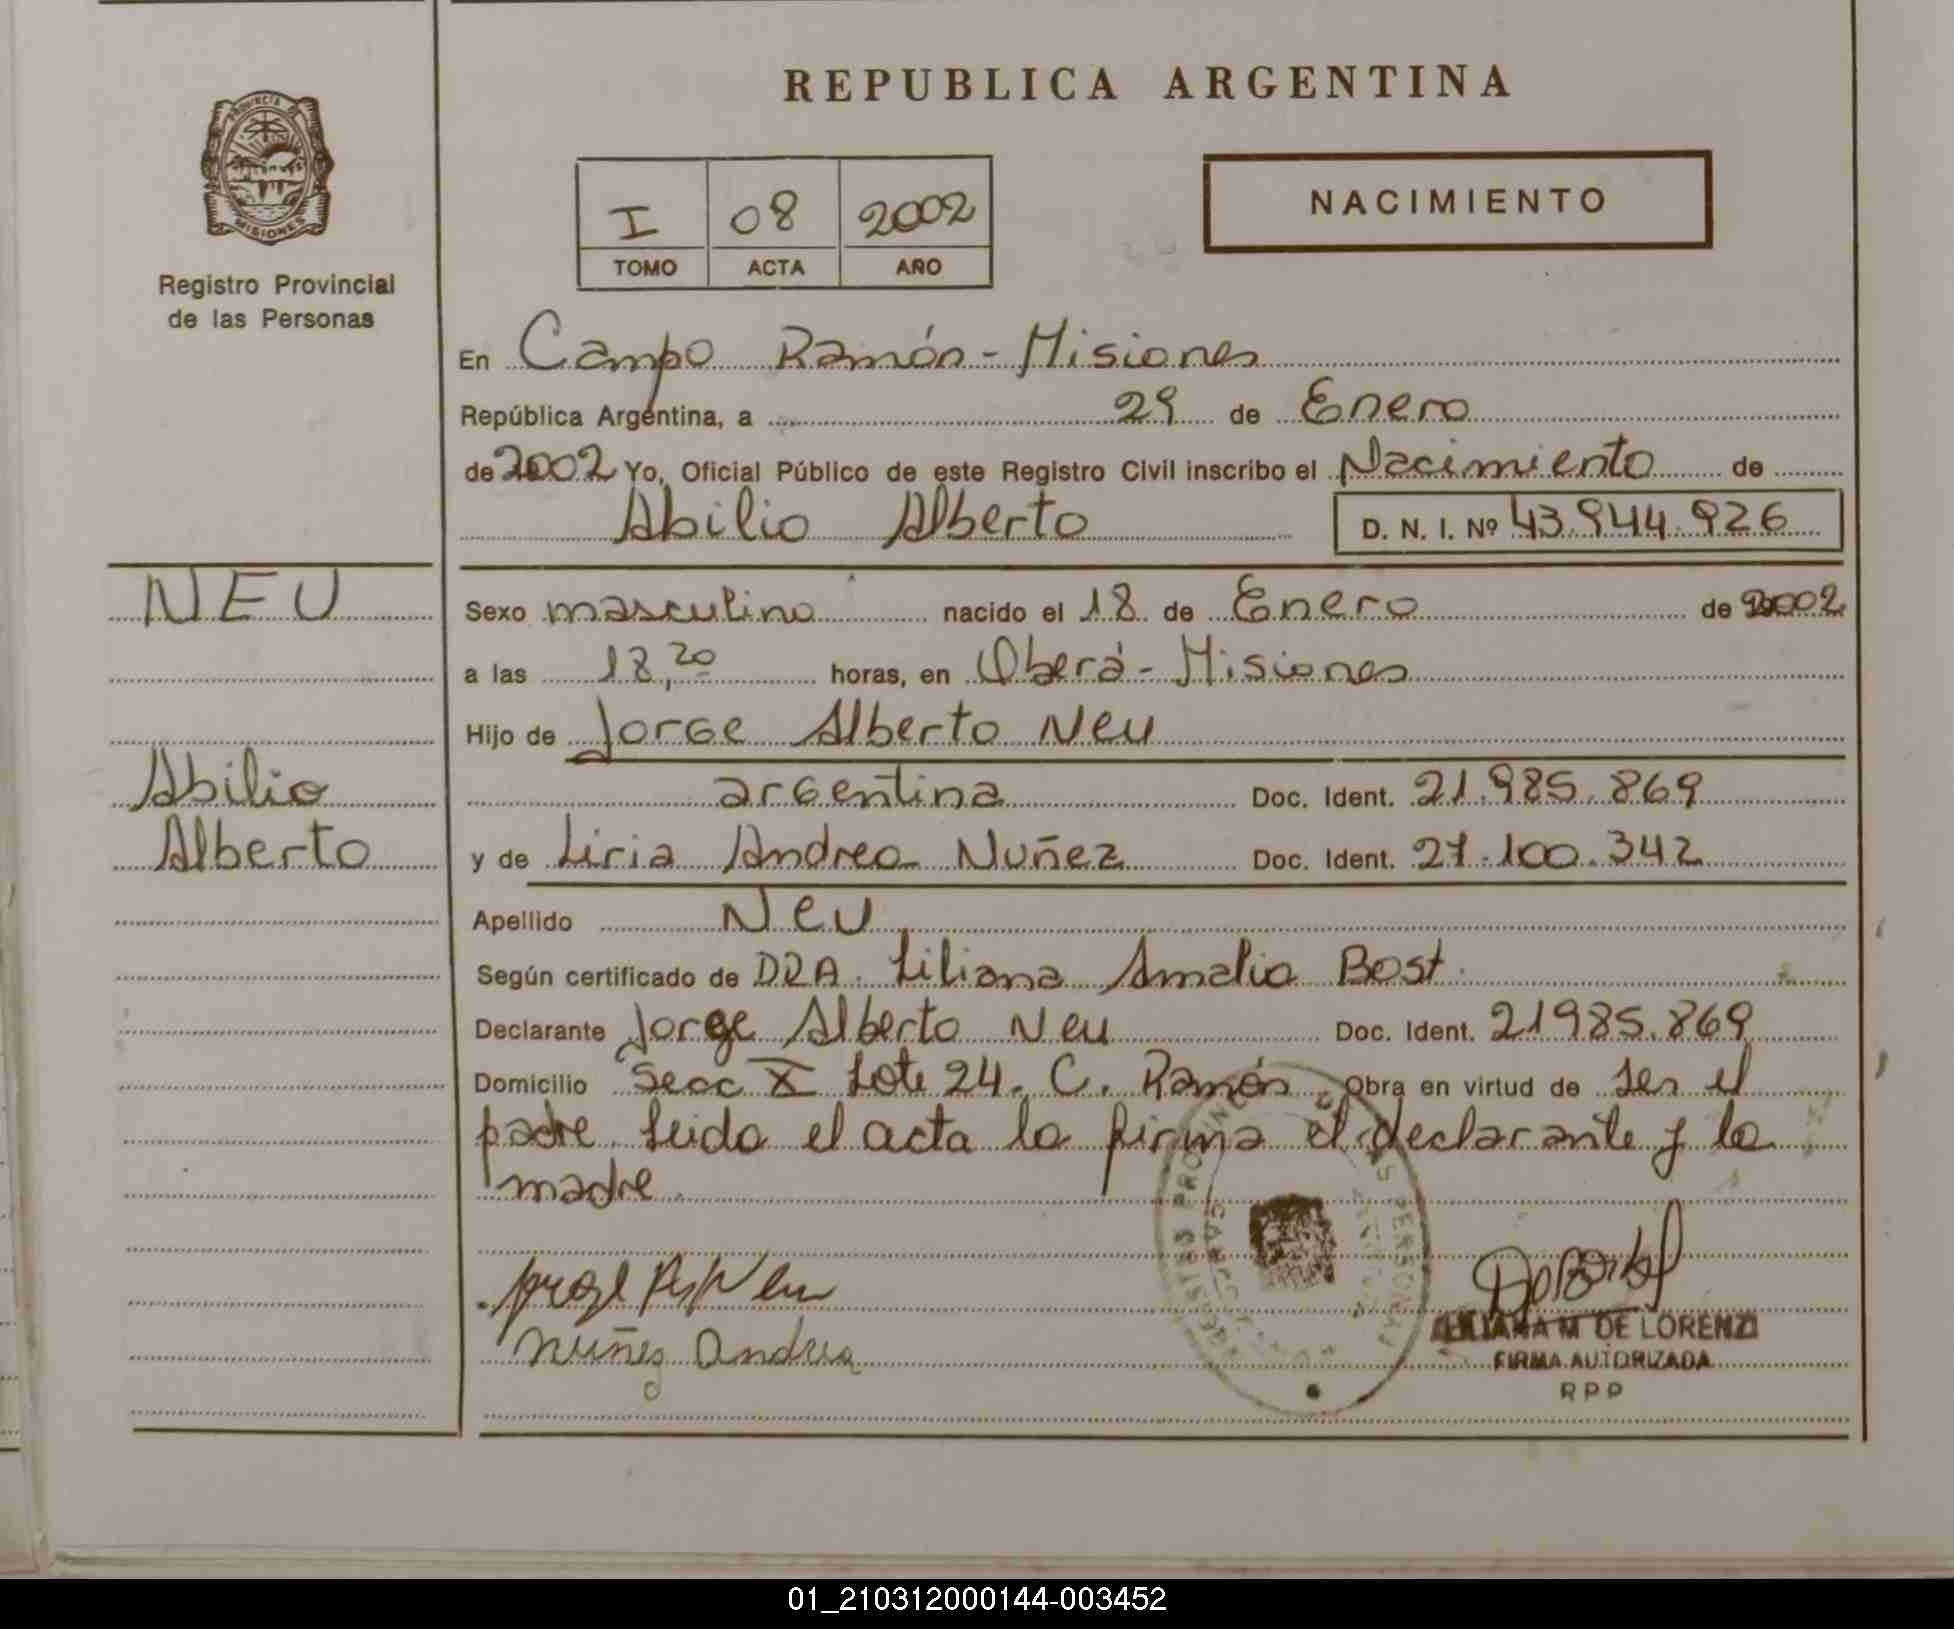 REPUBLICA ARGENTINA
PROVINCIA DE
MISIONES
Registro Provincial
de las Personas
I 08 2002
TOMO ACTA AÑO
NACIMIENTO
En Campo Ramón - Misiones
República Argentina, a 29 de Enero
de 2002 Yo, Oficial Público de este Registro Civil inscribo el Nacimiento de
Abilio Alberto D. N. I. Nº 43.944.926
NEU
Sexo masculino nacido el 18 de Enero de 2002
a las 18,20 horas, en Oberá - Misiones
Hijo de Jorge Alberto Neu
Abilio
argentina Doc. Ident. 21.985.869
Alberto
y de Liria Andrea Nuñez Doc. Ident. 27.100.342
Apellido Neu
Según certificado de DRA. Liliana Amalia Bost.
Declarante Jorge Alberto Neu Doc. Ident. 21985.869
Domicilio Secc X Lote 24. C. Ramón. Obra en virtud de ser el
padre. Leida el acta la firma el declarante y la
madre.
Nuñez Andrea
LILIANA M DE LORENZI
FIRMA AUTORIZADA
R P P
01_210312000144-003452